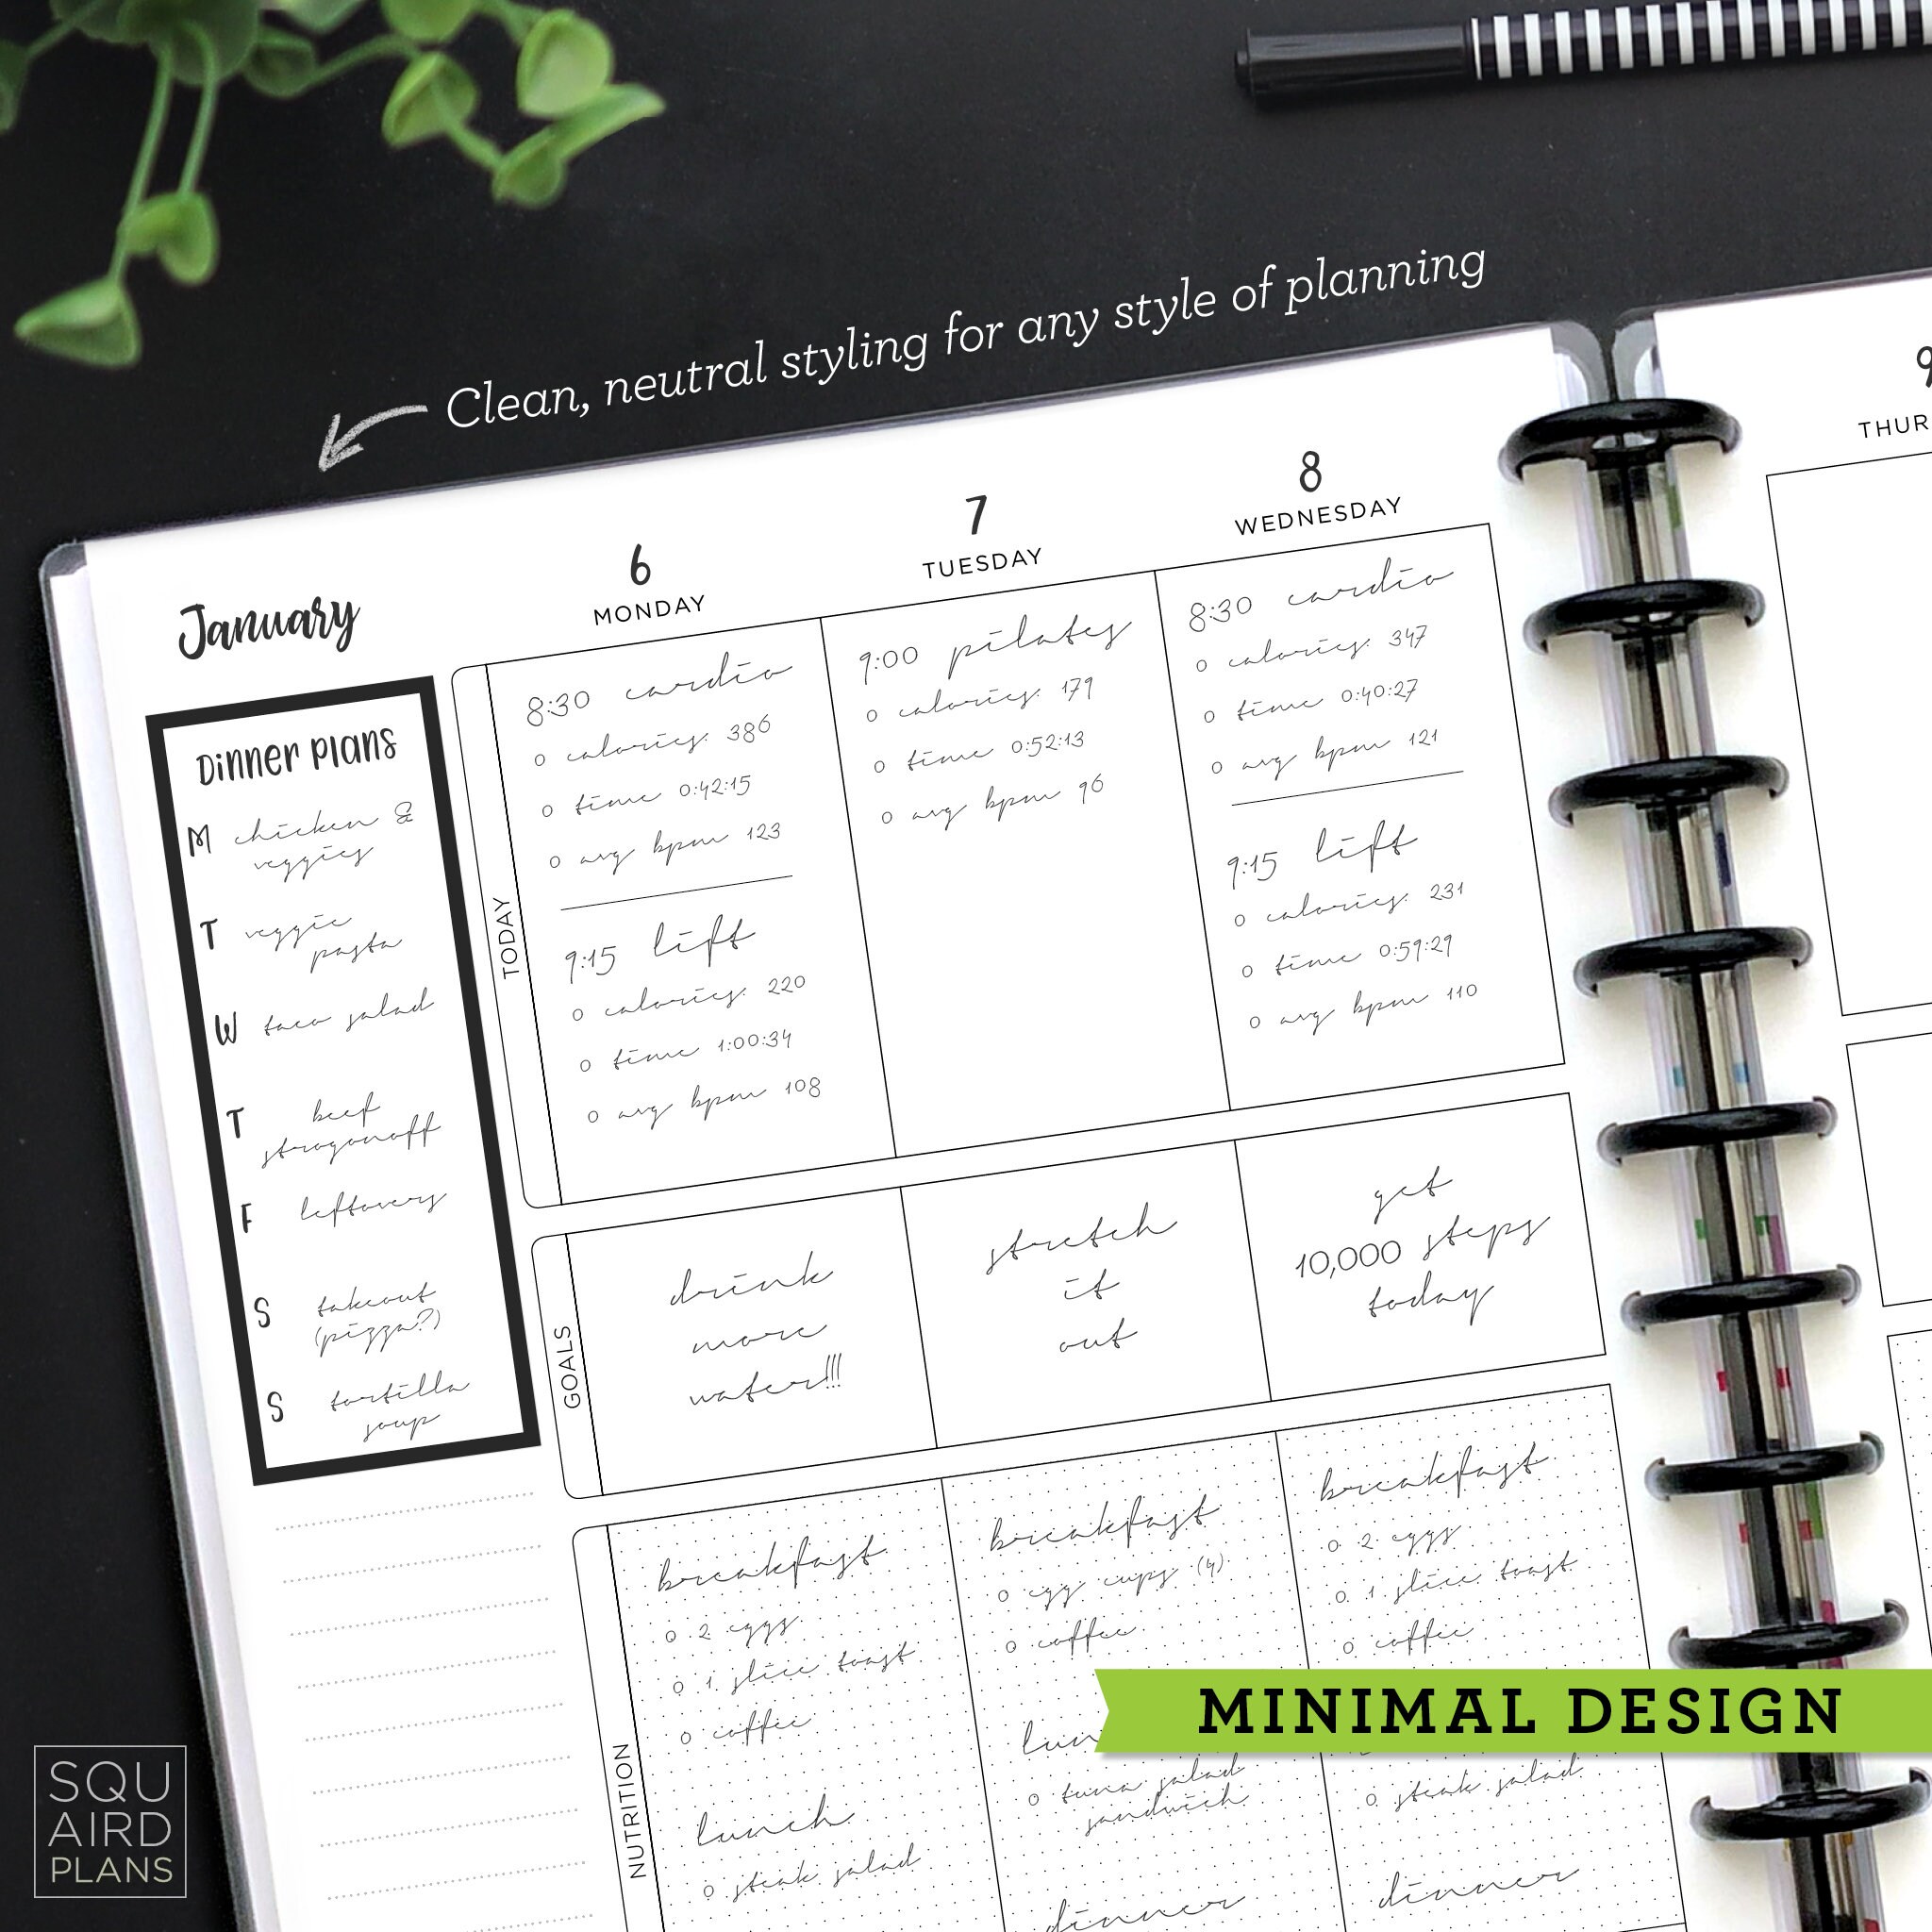 Clean, neutral styling for any style of planning
January
6
MONDAY
7
TUESDAY
8
WEDNESDAY
9
THUR
Dinner Plans
M chicken &
veggies
T veggie
pasta
W taco salad
T beef
stroganoff
F leftovers
S takeout
(pizza?)
S tortilla
soup
TODAY
8:30 cardio
o calories: 386
o time 0:42:15
o avg bpm 123
9:15 lift
o calories: 220
o time 1:00:34
o avg bpm 108
9:00 pilates
o calories: 179
o time 0:52:13
o avg bpm 96
8:30 cardio
o calories: 347
o time 0:40:27
o avg bpm 121
9:15 lift
o calories: 231
o time 0:59:29
o avg bpm 110
GOALS
drink
more
water!!!
stretch
it
out
get
10,000 steps
today
NUTRITION
breakfast
o 2 eggs
o 1 slice toast
o coffee
lunch
o steak salad
breakfast
o egg cups (4)
o coffee
lun
o tuna salad
sandwich
dinner
breakfast
o 2 eggs
o 1 slice toast
o coffee
o steak salad
dinner
MINIMAL DESIGN
SQU
AIRD
PLANS